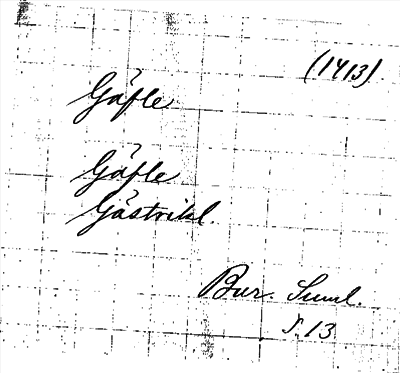 (1413)
Gäfle
Gäfle
Gästrikl.
Bur. Suml.
S. 13